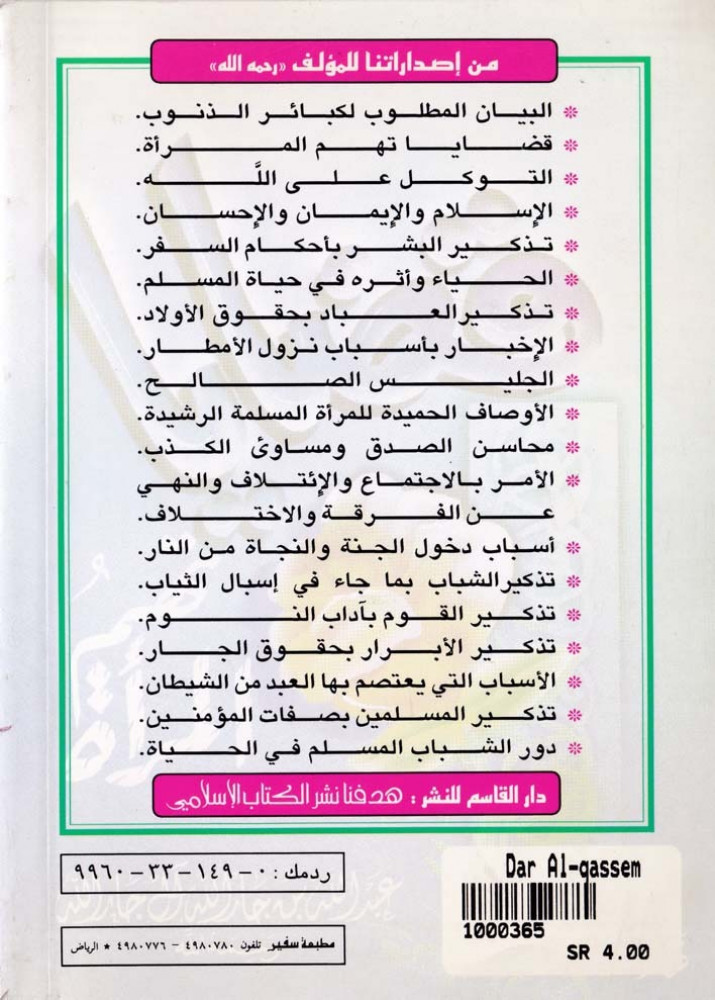 من إصداراتنا للمؤلف «رحمه الله»
* البيان المطلوب لكبائر الذنوب.
* قضايا تهم المرأة.
* التوكل على اللَّه.
* الإسلام والإيمان والإحسان.
* تذكير البشر بأحكام السفر.
* الحياء وأثره في حياة المسلم.
* تذكير العباد بحقوق الأولاد.
* الإخبار بأسباب نزول الأمطار.
* الجليس الصالح.
* الأوصاف الحميدة للمرأة المسلمة الرشيدة.
* محاسن الصدق ومساوئ الكذب.
* الأمر بالاجتماع والإئتلاف والنهي
عن الفرقة والاختلاف.
* أسباب دخول الجنة والنجاة من النار.
* تذكير الشباب بما جاء في إسبال الثياب.
* تذكير القوم بآداب النوم.
* تذكير الأبرار بحقوق الجار.
* الأسباب التي يعتصم بها العبد من الشيطان.
* تذكير المسلمين بصفات المؤمنين.
* دور الشباب المسلم في الحياة.
دار القاسم للنشر : هدفنا نشر الكتاب الإسلامي
ردمك : ٠ - ١٤٩ - ٣٣ - ٩٩٦٠
مطبعة سفير تلفون ٤٩٨٠٧٨٠ - ٤٩٨٠٧٧٦ * الرياض
Dar Al-qassem
1000365
SR 4.00